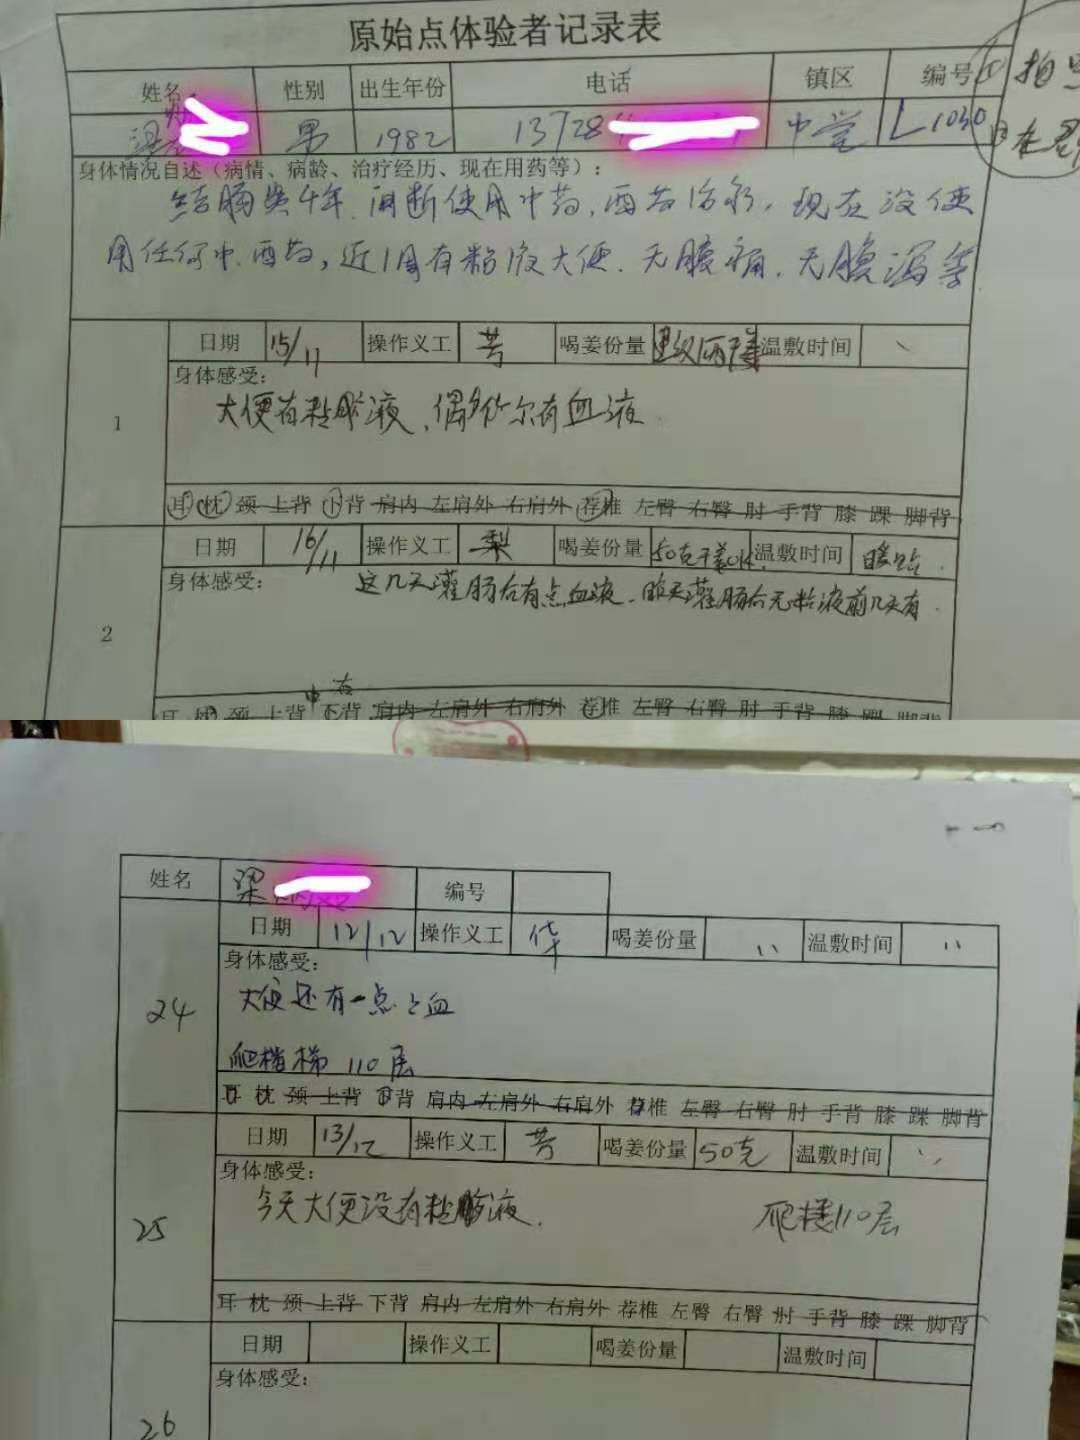 原始点体验者记录表
姓名 性别 出生年份 电话 镇区 编号
梁 男 1982 13728 中堂 L1030
身体情况自述（病情、病龄、治疗经历、现在用药等）：
结肠炎4年，间断使用中药，西药治疗，现在没使
用任何中、西药，近1周有粘液大便．无腹痛．无腹泻等
日期 15/11 操作义工 芳 喝姜份量 温敷时间 、
身体感受：
1
大便有粘胶液、偶尔有血液．
耳 枕 颈 上背 下背 肩内 左肩外 右肩外 荐椎 左臀 右臀 肘 手背 膝 踝 脚背
日期 16/11 操作义工 梨 喝姜份量 50克干姜 温敷时间 暖
身体感受：
2
这几天灌肠后有点血液．昨天灌肠后无粘液前几天有．
中 右
耳 枕 颈 上背 下背 肩内 左肩外 右肩外 荐椎 左臀 右臀 肘 手背 膝 踝 脚背
姓名 梁 编号
日期 12/12 操作义工 华 喝姜份量 、、 温敷时间 、、
身体感受：
24
大便还有一点点血
爬楼梯 110层
耳 枕 颈 上背 下背 肩内 左肩外 右肩外 荐椎 左臀 右臀 肘 手背 膝 踝 脚背
日期 13/12 操作义工 芳 喝姜份量 50克 温敷时间 、、
身体感受：
25
今天大便没有粘胶液． 爬楼110层
耳 枕 颈 上背 下背 肩内 左肩外 右肩外 荐椎 左臀 右臀 肘 手背 膝 踝 脚背
日期 操作义工 喝姜份量 温敷时间
身体感受：
26